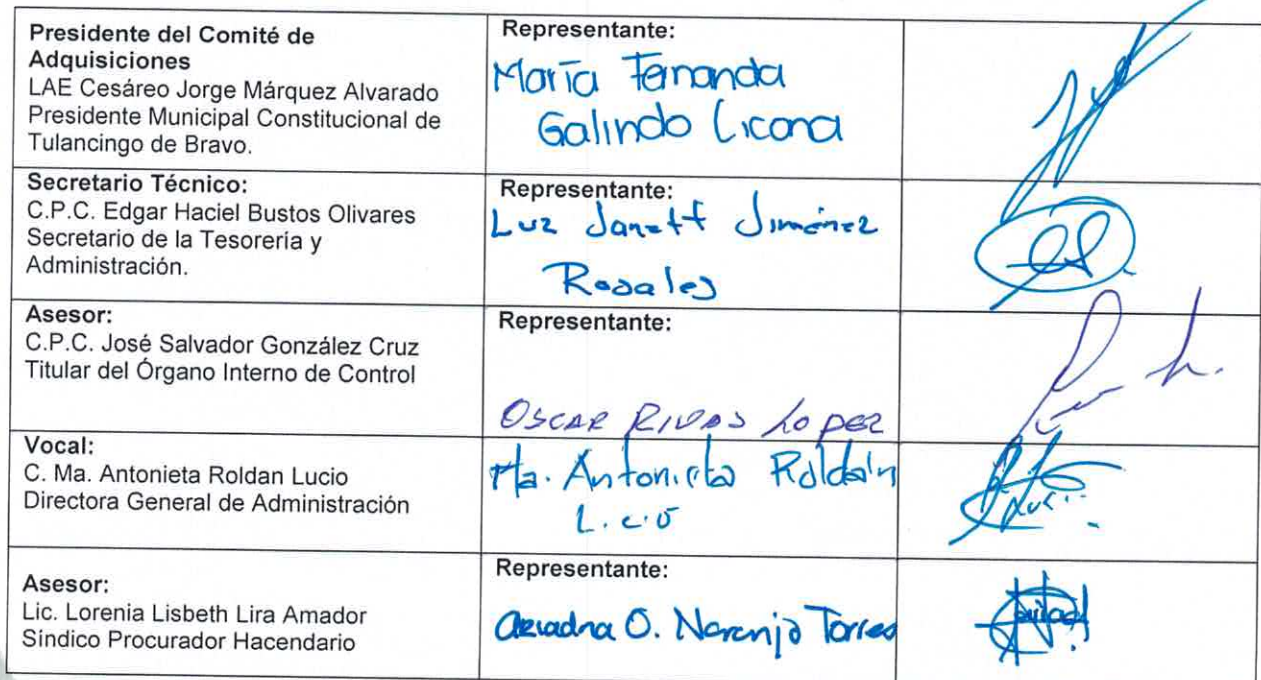 Presidente del Comité de
Adquisiciones
LAE Cesáreo Jorge Márquez Alvarado
Presidente Municipal Constitucional de
Tulancingo de Bravo.
Representante:
María Fernanda
Galindo Licona
Secretario Técnico:
C.P.C. Edgar Haciel Bustos Olivares
Secretario de la Tesorería y
Administración.
Representante:
Luz Janett Jiménez
Rosales
Asesor:
C.P.C. José Salvador González Cruz
Titular del Órgano Interno de Control
Representante:
OSCAR RIVAS LOPEZ
Vocal:
C. Ma. Antonieta Roldan Lucio
Directora General de Administración
Ma. Antonieta Roldán
Lucio
Asesor:
Lic. Lorenia Lisbeth Lira Amador
Síndico Procurador Hacendario
Representante:
Ariadna O. Naranjo Torres